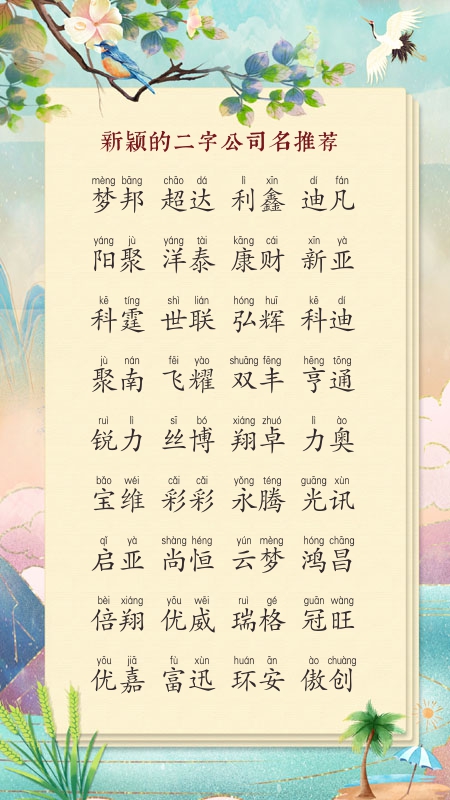 新颖的二字公司名推荐
mèng bāng chāo dá lì xīn dí fán
梦邦 超达 利鑫 迪凡
yáng jù yáng tài kāng cái xīn yà
阳聚 洋泰 康财 新亚
kē tíng shì lián hóng huī kē dí
科霆 世联 弘辉 科迪
jù nán fēi yào shuāng fēng hēng tōng
聚南 飞耀 双丰 亨通
ruì lì sī bó xiáng zhuó lì ào
锐力 丝博 翔卓 力奥
bǎo wéi cǎi cǎi yǒng téng guāng xùn
宝维 彩彩 永腾 光讯
qǐ yà shàng héng yún mèng hóng chāng
启亚 尚恒 云梦 鸿昌
bèi xiáng yōu wēi ruì gé guān wàng
倍翔 优威 瑞格 冠旺
yōu jiā fù xùn huán ān ào chuàng
优嘉 富迅 环安 傲创